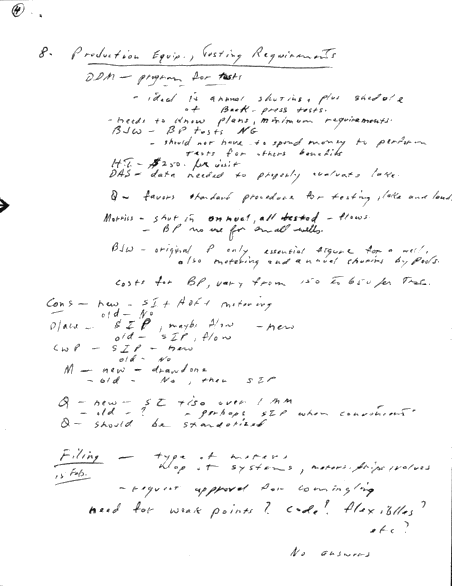 4
8. Production Equip., Testing Requirements
DDM — program for tests
- ideal is annual shutins, plus shedule
of Back-press tests.
- needs to know plans, minimum requirements.
BJW - BP tests NG
- should not have to spend money to perform
tests for others benefits
H.I. - $250. per visit
DAS - data needed to properly evaluate later.
Q - favors standard procedure for testing, lake and land.
Morriss - shut in annual, all tested - flows.
- BP no use for small wells.
BJW - original P only essential figure for a well,
also metering and annual shutins by Pools.
costs for BP, vary from 150 to 650 per Test.
Cons — new - SI + AOF + metering
old - No
D/aws - SIP, maybe flow - new
old - SIP, flow
CWP - SIP - new
old - No
M — new - deadone
- old - No, then SIP
Q - new - SI also over 1 MM
- old - ? - perhaps SIP when convenient
Q - should be standardized
Filing — type of meters
is Feb. Wop. of systems, meters. drips, valves
- request approval for comingling
need for weak points? code? flexibles?
etc?
No answers